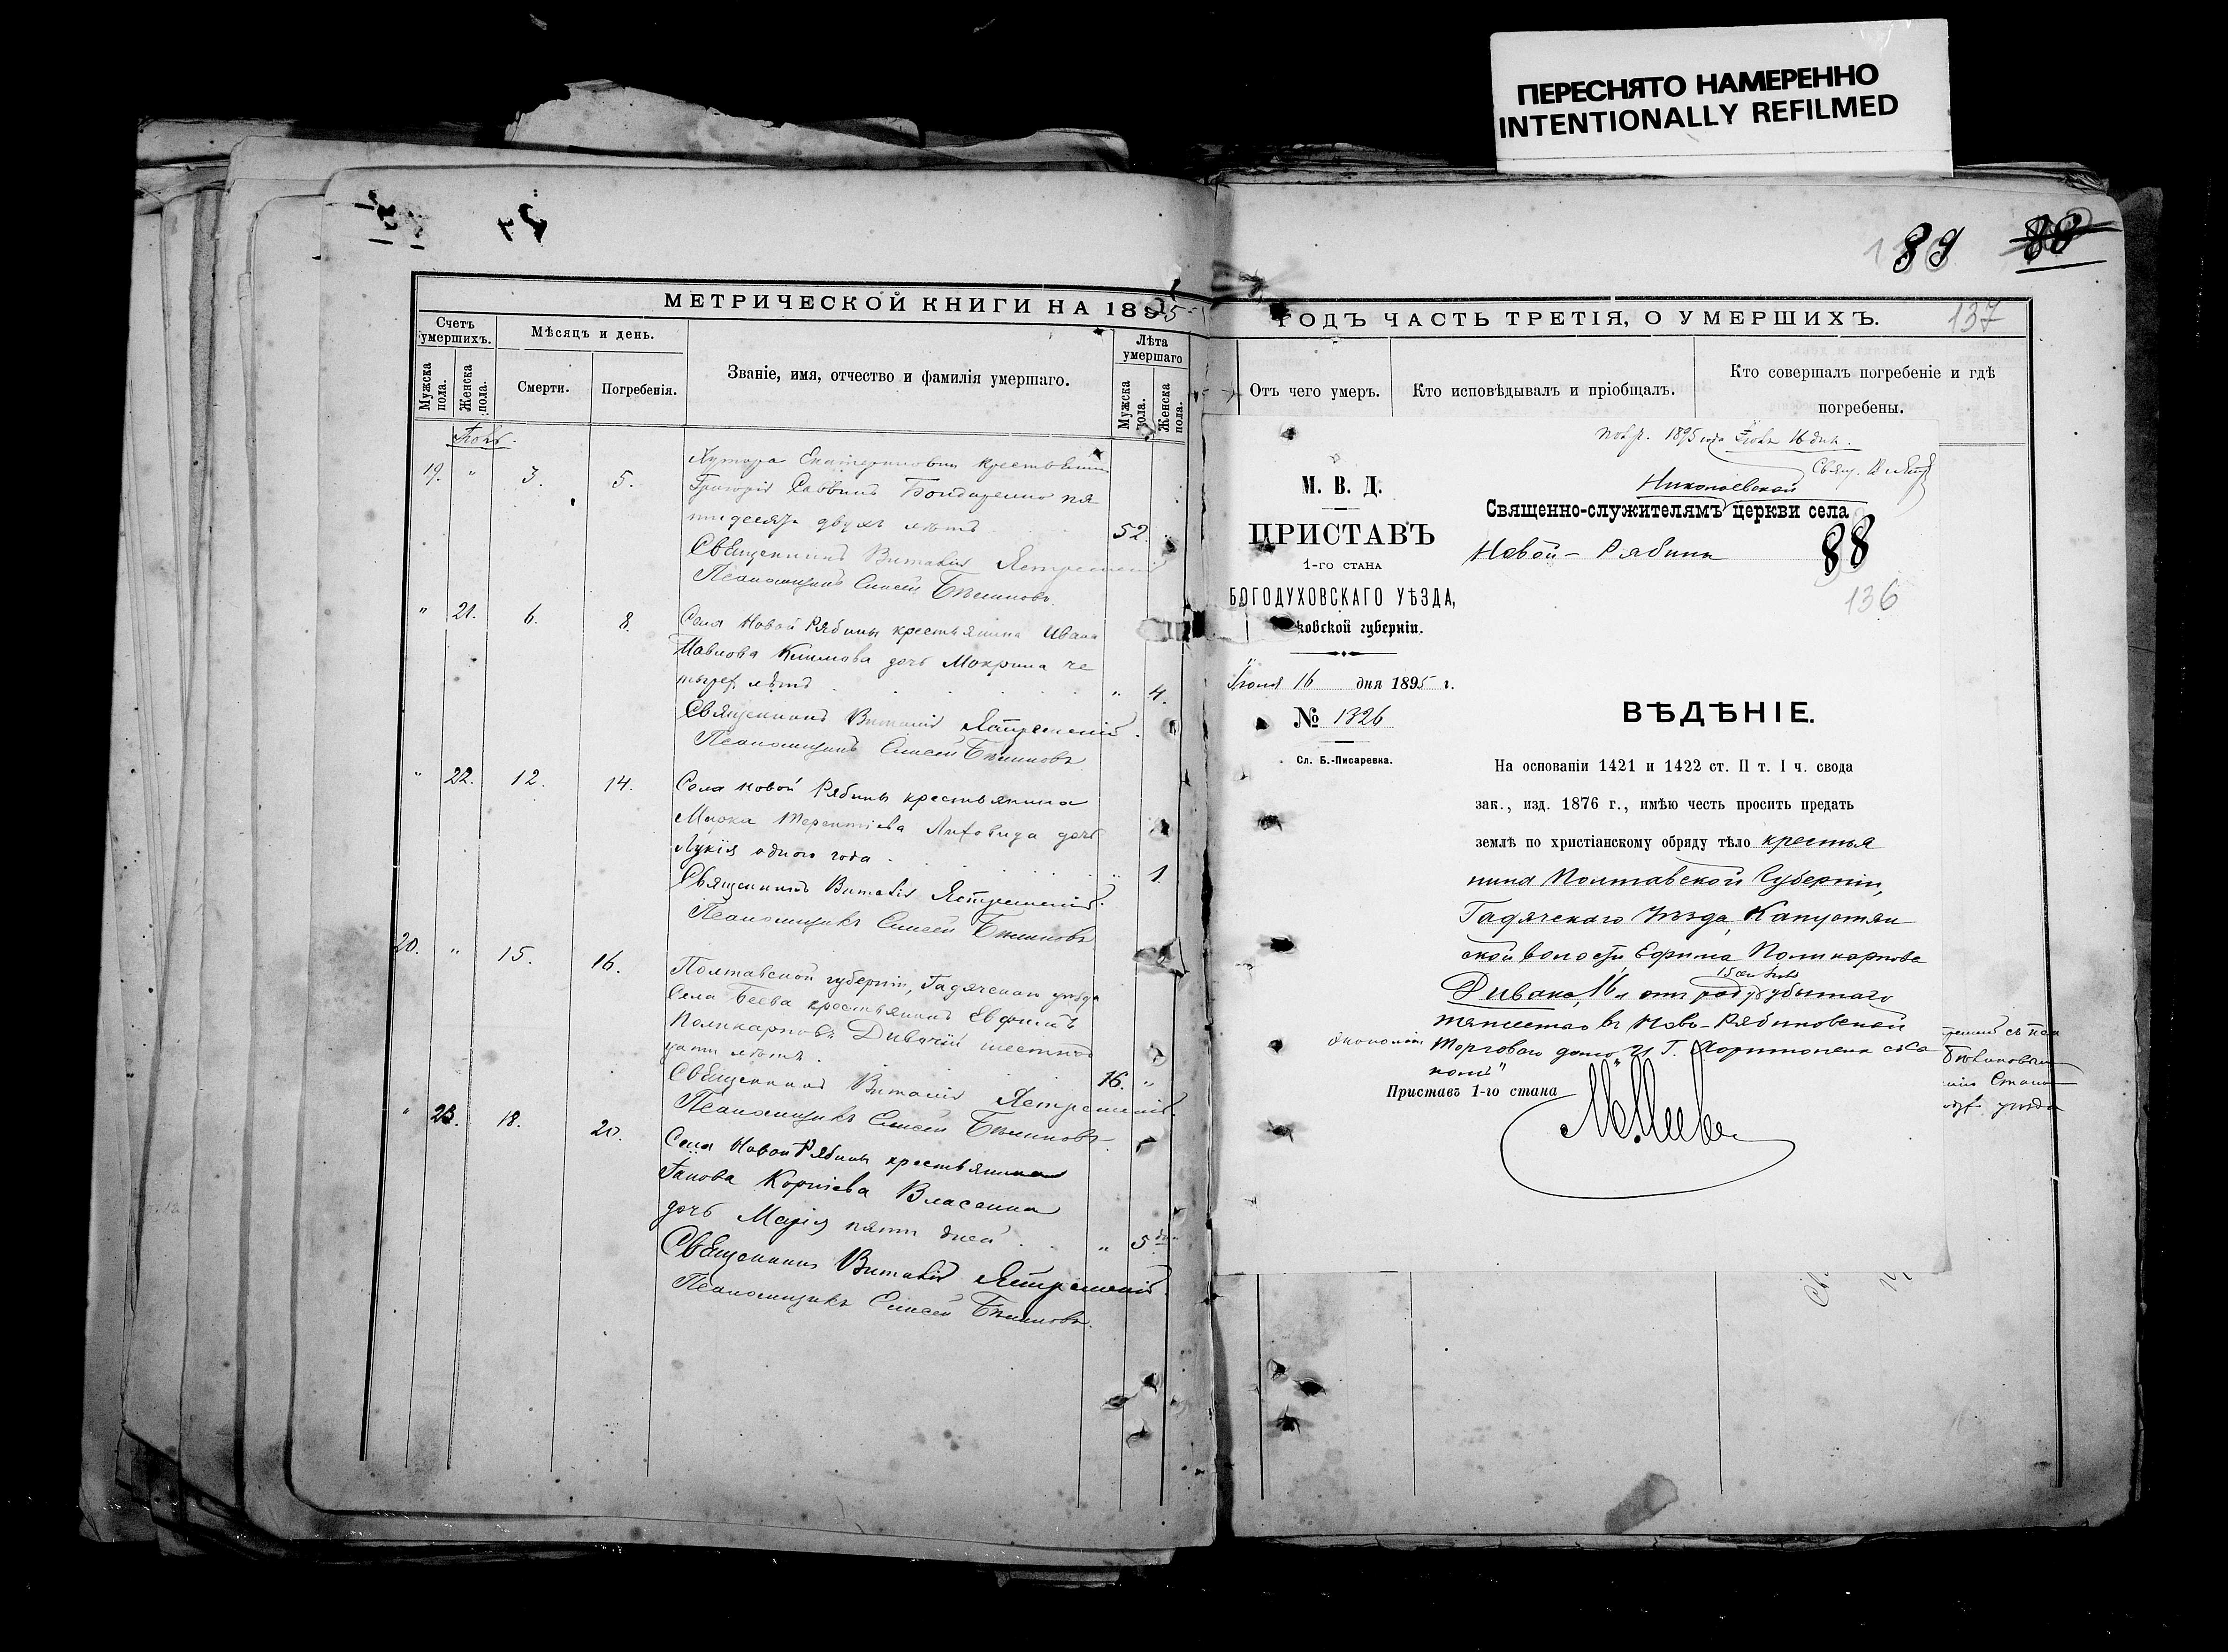 ПЕРЕСНЯТО НАМЕРЕННО
INTENTIONALLY REFILMED
89
88
МЕТРИЧЕСКОЙ КНИГИ НА 1895
Счетъ умершихъ.
Мужска пола.
Женска пола.
Мѣсяцъ и день.
Смерти.
Погребенія.
Званіе, имя, отчество и фамилія умершаго.
Лѣта умершаго
Мужска пола.
Женска пола.
19. " 3. 5.
Хутора Екатериновки крестьянинъ
Григорій Саввинъ Бондаренко пя
тидесяти двухъ лѣтъ 52.
Священникъ Виталій Ястремскій
Псаломщикъ Елисей
" 21. 6. 8.
Села Новой Рябины крестьянина Ивана
Павлова Климова дочь Мокрина че
тырех лѣтъ " 4.
Священникъ Виталій Ястремскій.
Псаломщикъ Елисей
" 22. 12. 14.
Села Новой Рябины крестьянина
Марка Терентіева дочь
Лукія одного года " 1.
Священникъ Виталій Ястремскій.
Псаломщикъ Елисей
20. " 15. 16.
Полтавской губерніи, Гадячскаго уѣзда
Села Беева крестьянинъ Евфимій
Поликарповъ шестнад
цати лѣтъ. 16. "
Священникъ Виталій Ястремскій.
Псаломщикъ Елисей
" 23. 18. 20.
Села Новой Рябины крестьянина
Іакова Корніева Власенка
дочь Марія пяти дней " 5
Священникъ Виталій Ястремскій.
Псаломщикъ Елисей
ГОДЪ ЧАСТЬ ТРЕТІЯ, О УМЕРШИХЪ. 137
Отъ чего умеръ.
Кто исповѣдывалъ и пріобщалъ.
Кто совершалъ погребеніе и гдѣ погребены.
1895 года 16 дня.
М. В. Д.
ПРИСТАВЪ
1-го стана
БОГОДУХОВСКАГО УѢЗДА,
ковской губерніи.
Іюня 16 дня 1895 г.
№ 1326
Сл. Б.-Писаревка.
Николаевской
Священно-служителямъ церкви села
Новой-Рябины
88
136
ВѢДѢНІЕ.
На основаніи 1421 и 1422 ст. II т. I ч. свода
зак., изд. 1876 г., имѣю честь просить предать
землѣ по христіанскому обряду тѣло крестья
нина Полтавской Губерніи,
Гадячскаго Уѣзда, Капустян
ской волости Ефима Поликарпова
Дивака, 16 л. отъ роду убытаго
въ Ново-Рябиновской
экономіи Торговаго дома „И. Г. Харитоненко съ Сы
номъ"
Пристав 1-го стана